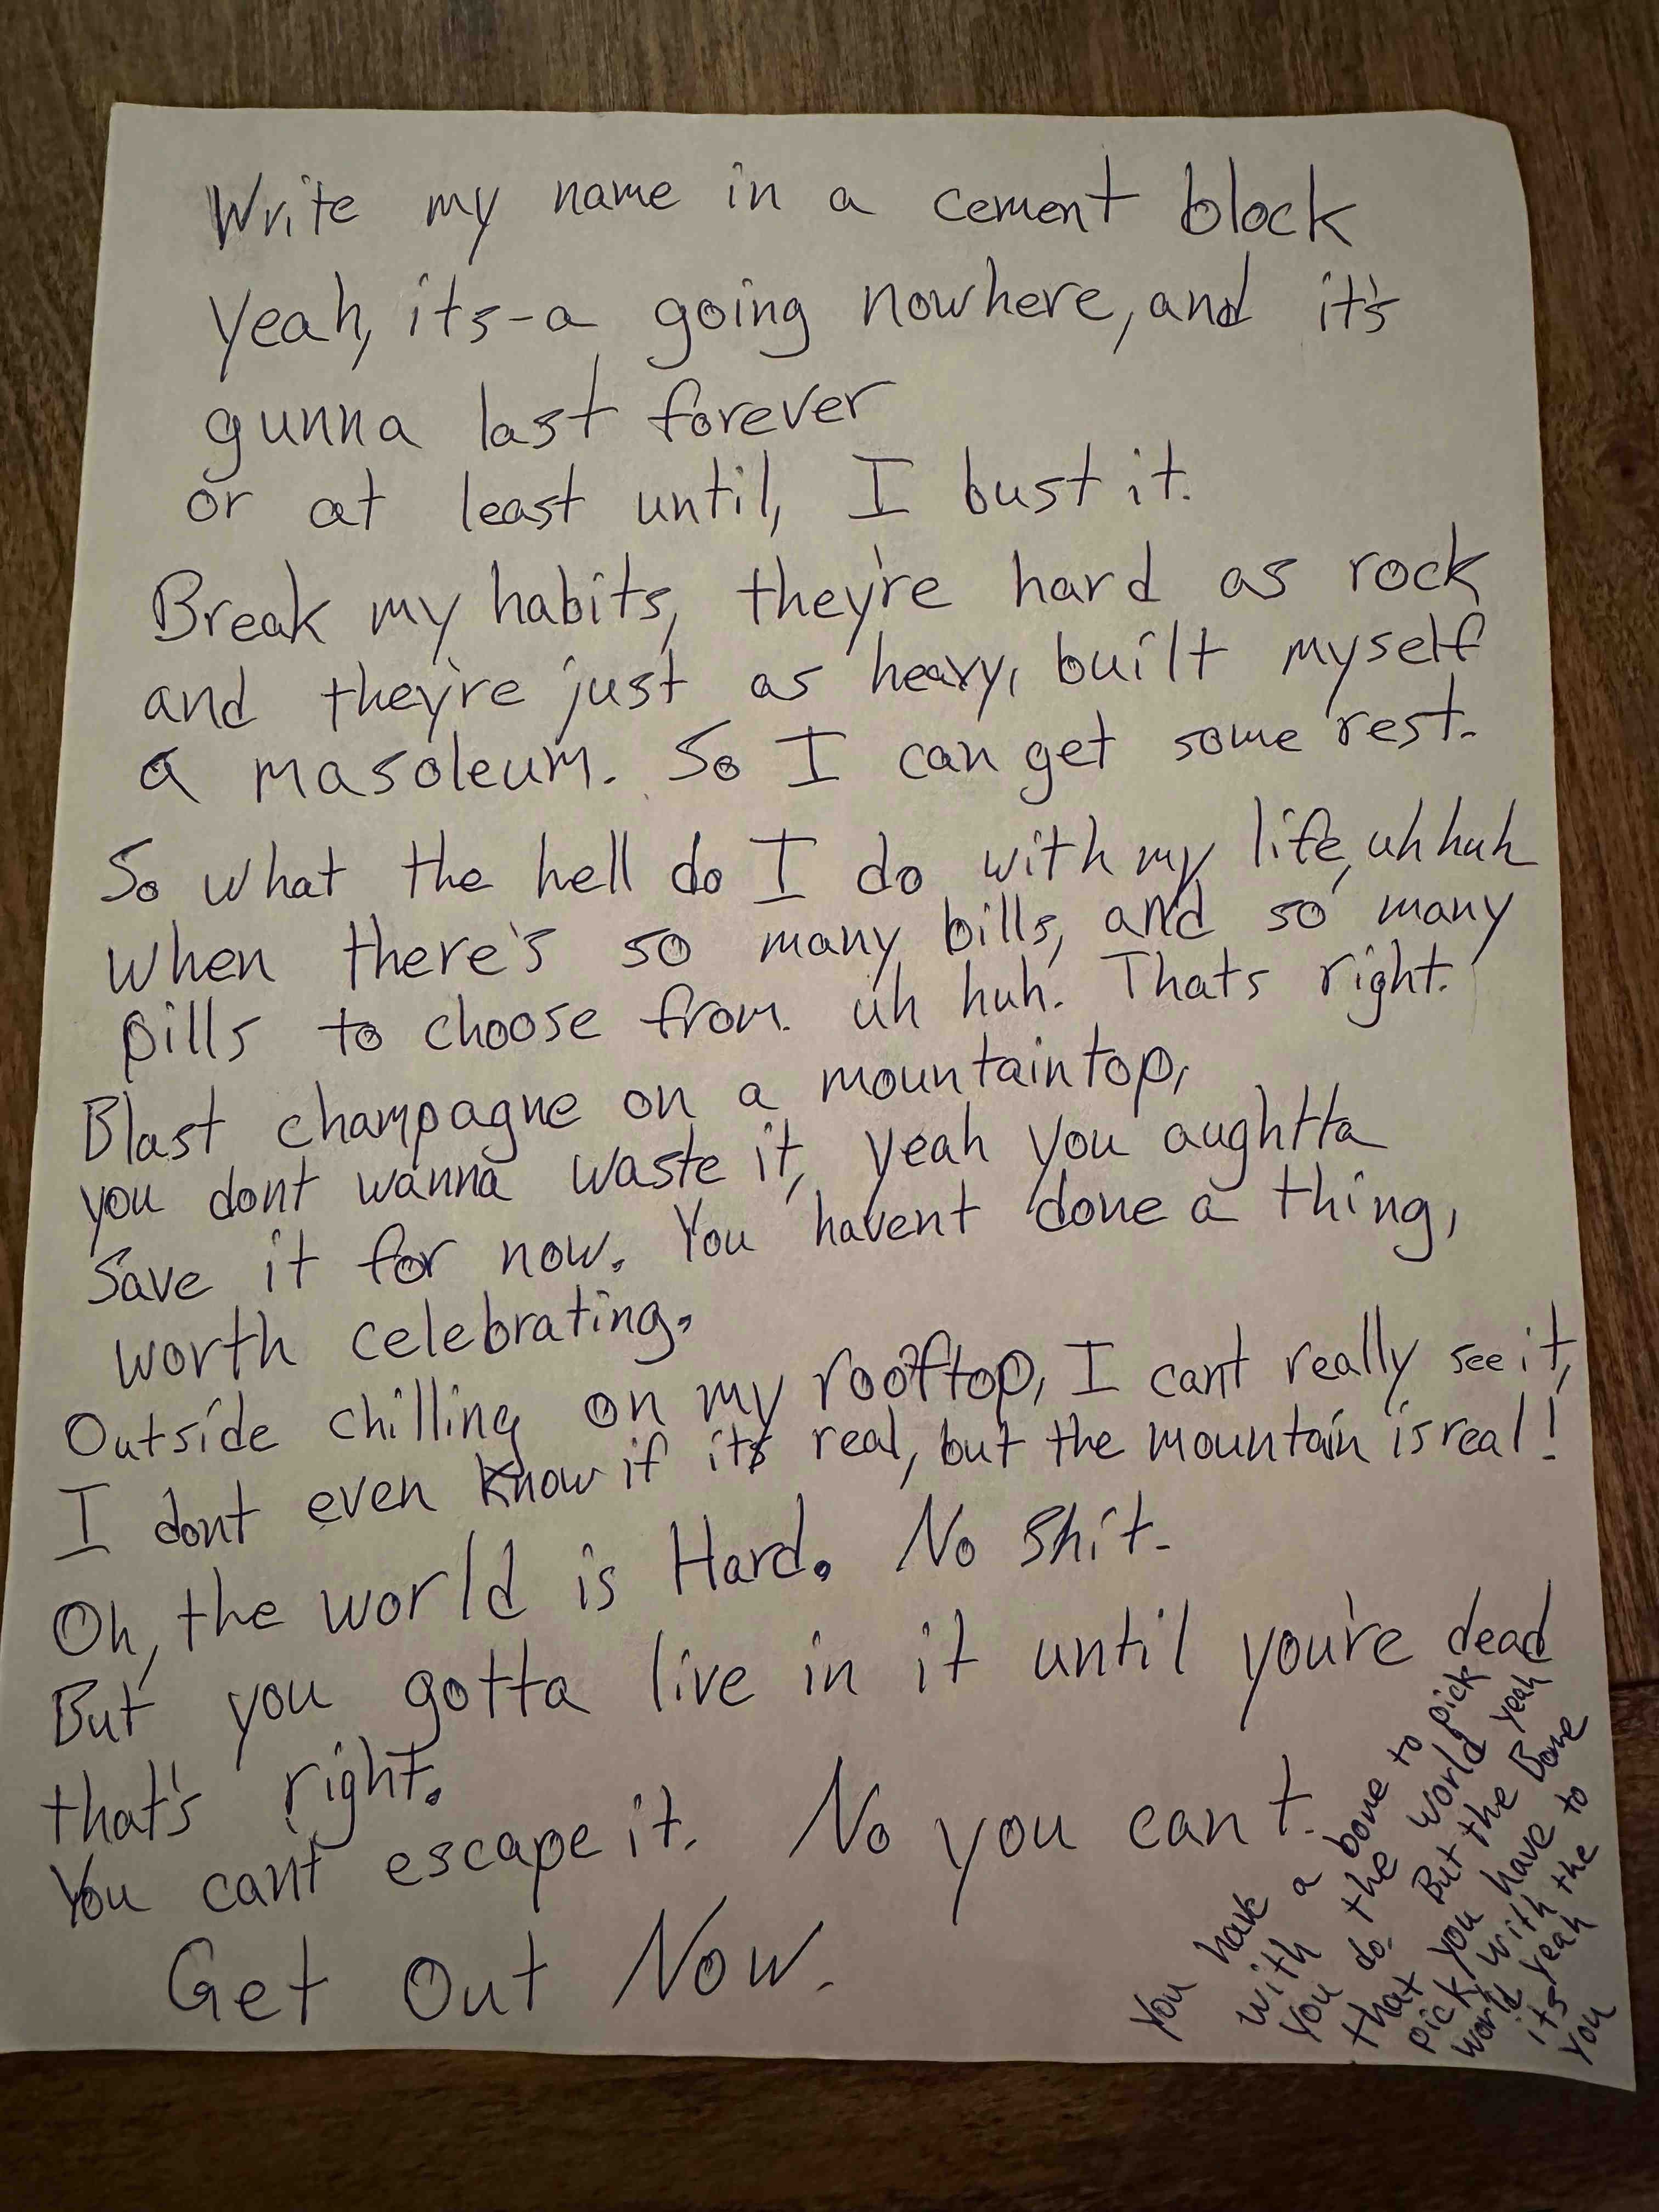 Write my name in a cement block
Yeah, its-a going nowhere, and it's
gunna last forever
or at least until, I bust it.
Break my habits, they're hard as rock
and they're just as heavy, built myself
a masoleum. So I can get some rest.
So what the hell do I do with my life, uh huh
when there's so many bills, and so many
pills to choose from. uh huh. Thats right.
Blast champagne on a mountaintop,
you dont wanna waste it, yeah you aughtta
save it for now. You havent done a thing,
worth celebrating.
Outside chilling on my rooftop, I cant really see it,
I dont even know if its real, but the mountain is real!
Oh, the world is Hard. No shit.
But you gotta live in it until you're dead
that's right.
You cant escape it. No you can't.
Get Out Now.
You have a bone to pick
with the world yeah
you do. But the Bone
that you have to
pick with the
world yeah
its
you